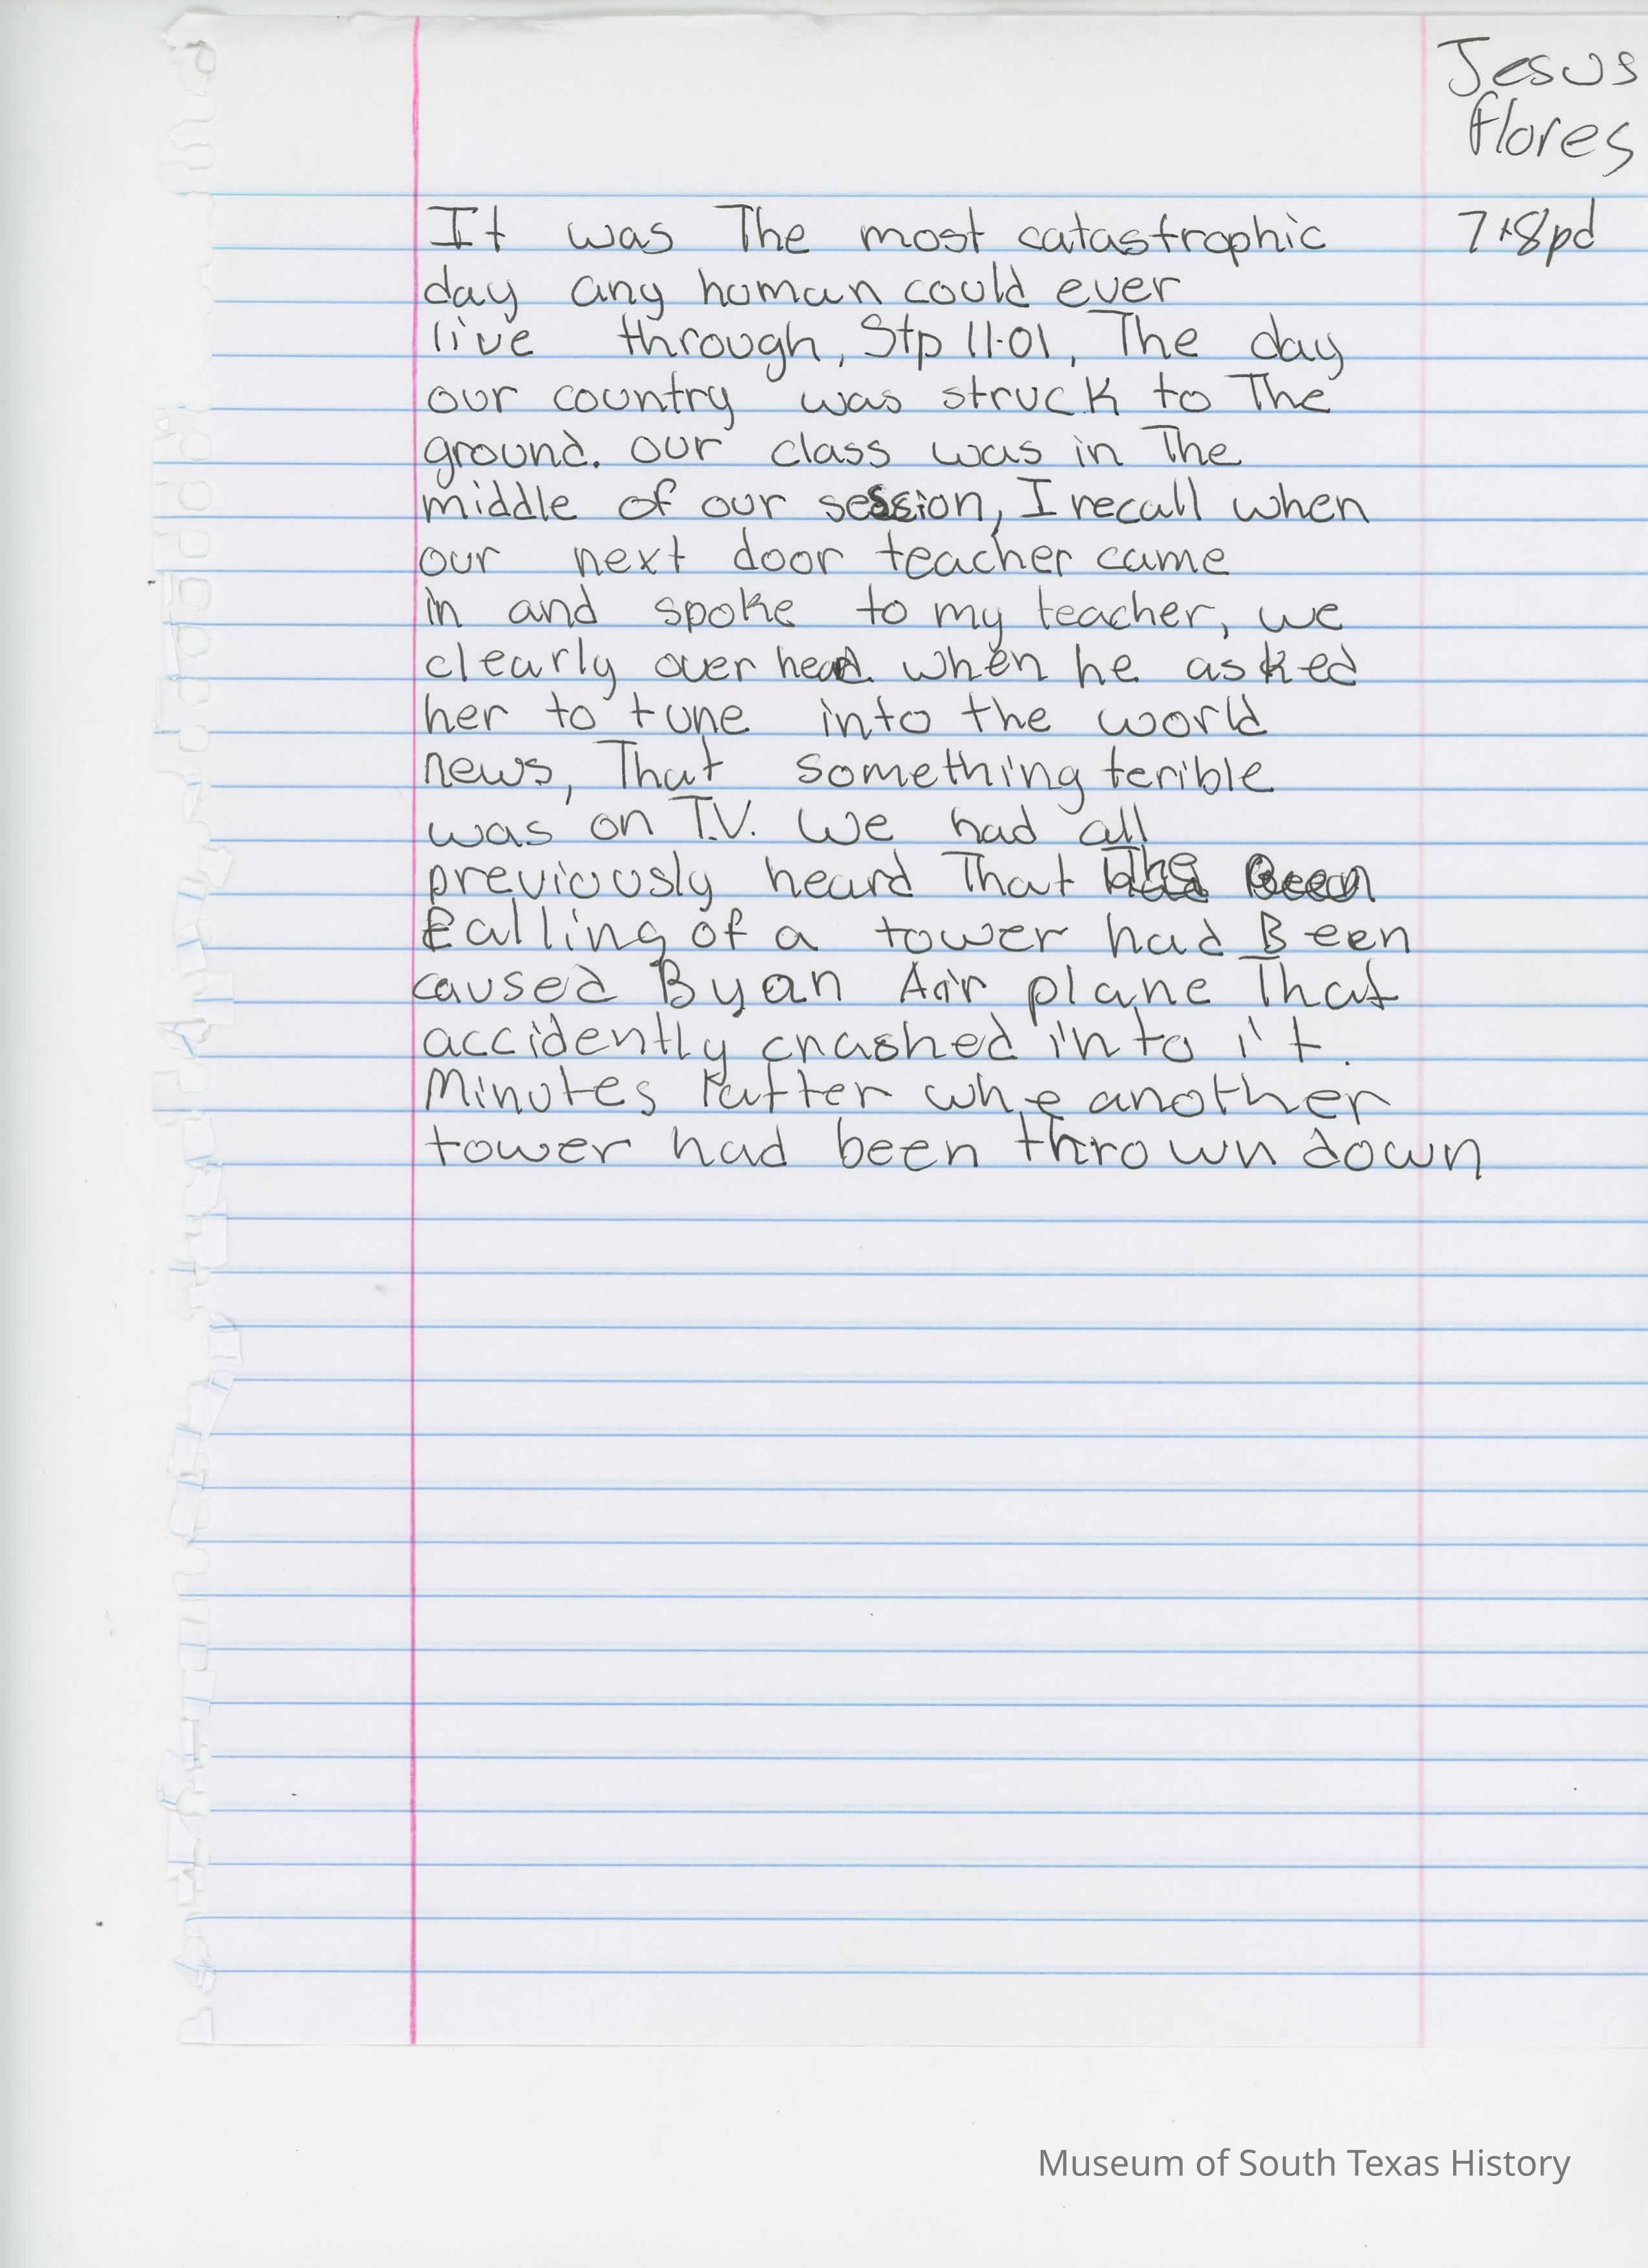 Jesus
flores
7+8pd
It was The most catastrophic
day any human could ever
live through, Stp 11-01, The day
our country was struck to The
ground. our class was in The
middle of our session, I recall when
our next door teacher came
in and spoke to my teacher, we
clearly over heard when he asked
her to tune into the world
news, That something terible
was on T.V. We had all
previously heard That The
falling of a tower had Been
caused By an Air plane That
accidently crashed into it.
Minutes latter whe another
tower had been thrown down
Museum of South Texas History